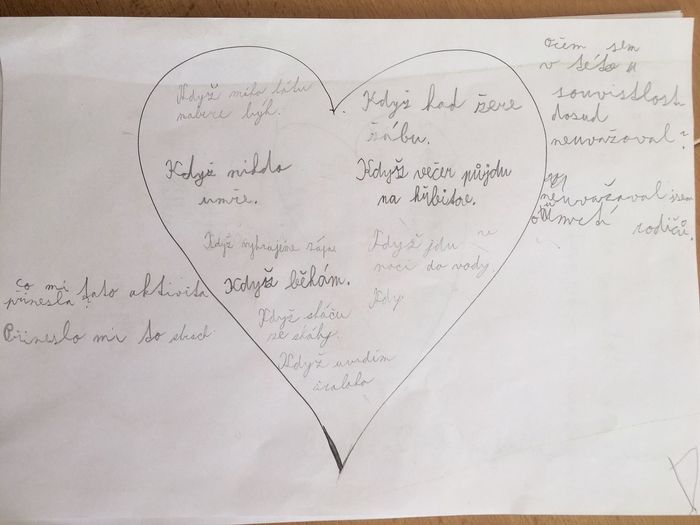 Když mího tátu
nabere býk.
Když had žere
žábu.
Když nikdo
umře.
Když večer půjdu
na hřbitov.
Když vyhrajeme zápas
Když jdu v
noci do vody.
Když běhám.
Kdy
Když skáču
ze skály.
Když uvidím
žraloka
O čem sem
v této
souvislosti
dosud
neuvažoval?
neuvažoval jsem
o smrti rodičů.
co mi tato aktivita
přinesla?
Přineslo mi to strach